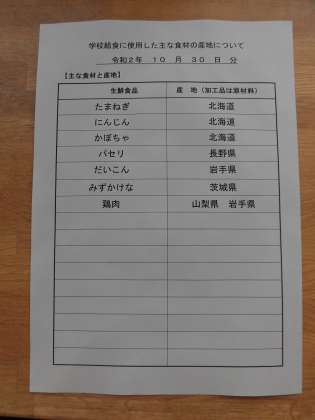 学校給食に使用した主な食材の産地について
令和2年 10 月 30 日 分
【主な食材と産地】
生鮮食品 産 地（加工品は原材料）
たまねぎ 北海道
にんじん 北海道
かぼちゃ 北海道
パセリ 長野県
だいこん 岩手県
みずかけな 茨城県
鶏肉 山梨県 岩手県